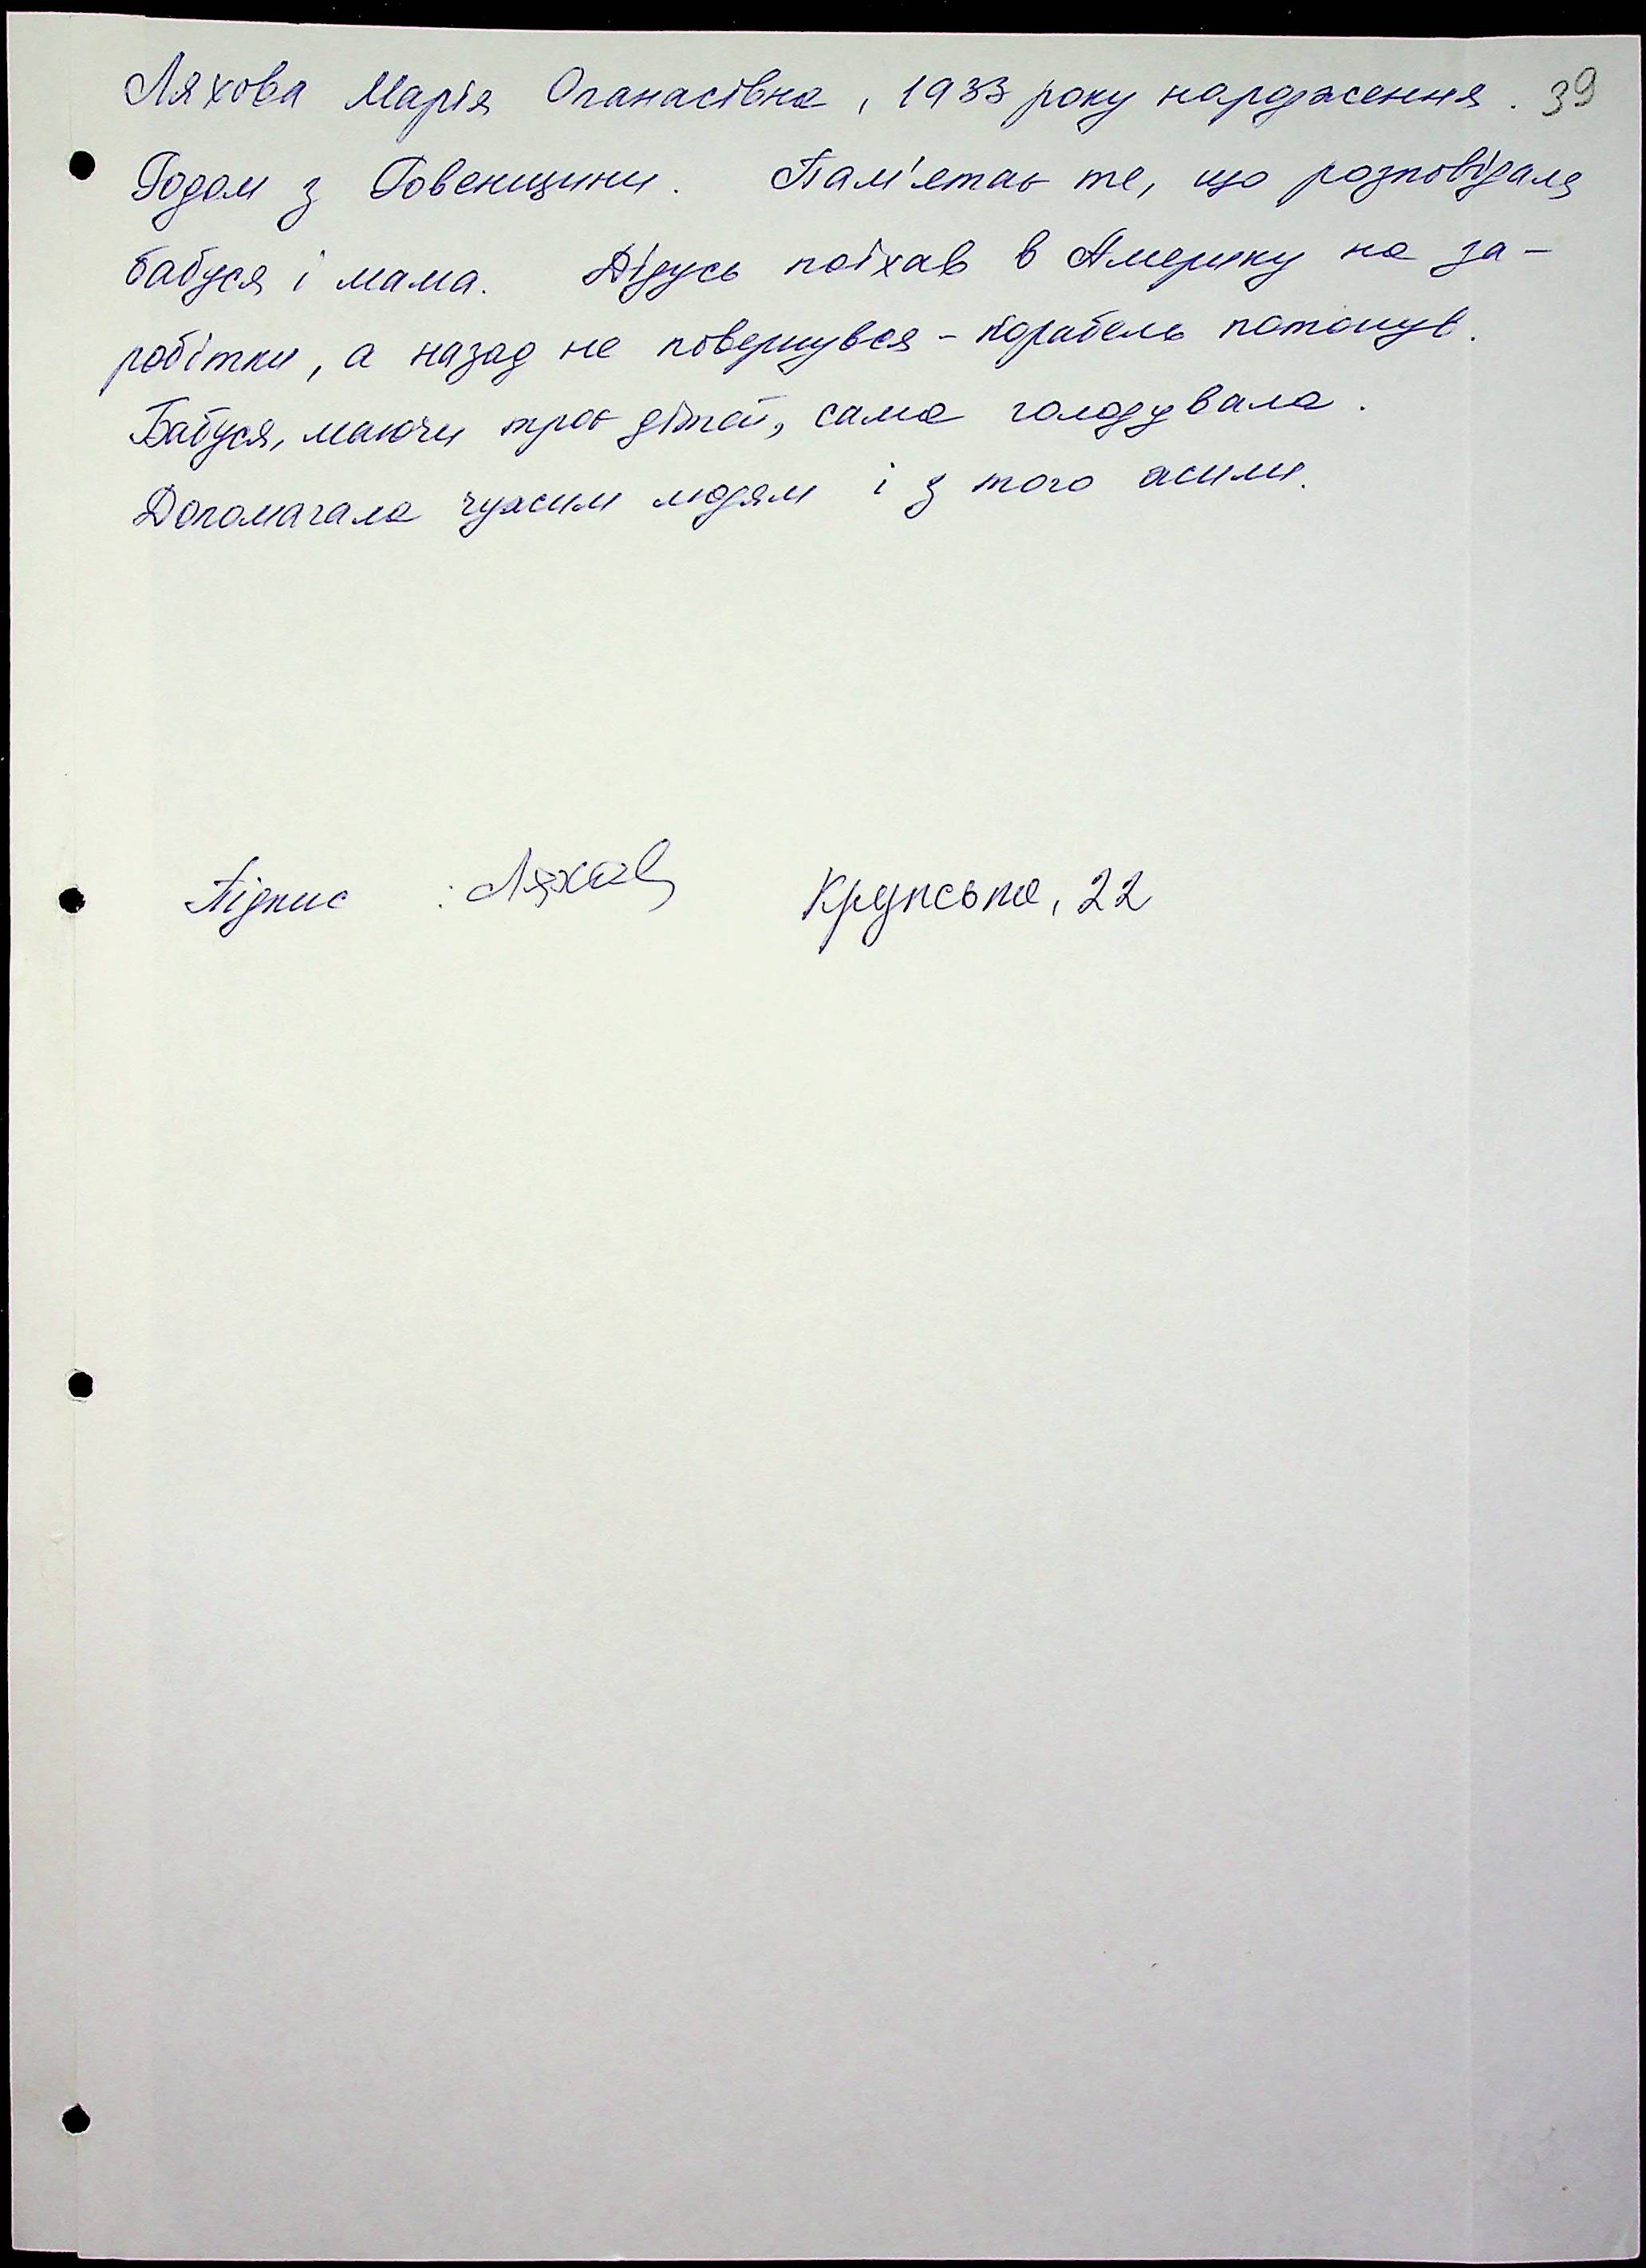 Ляхова Марія Опанасівна, 1933 року народження. 39
Родом з Ровенщини. Пам'ятаю те, що розповідала
бабуся і мама. Дідусь поїхав в Америку на за-
робітки, а назад не повернувся - корабель потонув.
Бабуся, маючи троє дітей, сама голодувала.
Допомагала чужим людям і з того жили.
Підпис : Ляхов
Крупської, 22